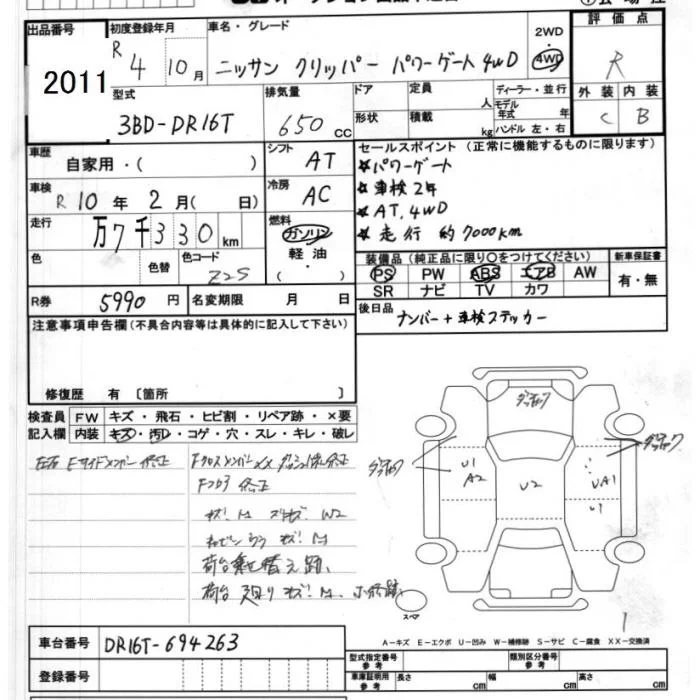 出品番号 初度登録年月 車名・グレード 2WD 評価点
2011 R4 10月 ニッサン クリッパー パワーゲート4WD 4WD R
型式 排気量 ドア 定員 ディーラー・並行 外装 内装
3BD-DR16T 650 CC 形状 積載 人 kg モデル年式 年 ハンドル 左・右 C B
車歴 自家用・( ) シフト AT セールスポイント(正常に機能するものに限ります)
☆パワーゲート
車検 R10年2月( 日) 冷房 AC ☆車検2年
☆AT,4WD
走行 万7千330km 燃料 ガソリン 軽油 ・( ) ☆走行 約7000km
色 色替 色コード Z2S 装備品(純正品に限り○をつけてください) 新車保証書
PS PW ABS エアB AW 有・無
SR ナビ TV カワ
R券 5990円 名変期限 月 日 後日品 ナンバー+車検ステッカー
注意事項申告欄(不具合内容等は具体的に記入して下さい)
修復歴 有〔箇所 〕
検査員 FW キズ・飛石・ヒビ割・リペア跡・×要
記入欄 内装 キズ・汚レ・コゲ・穴・スレ・キレ・破レ
左右 Fサイドメンバー 修正 FクロスメンバーXX
修正
キズ!M W2
キズ!M
荷台乗せ替え跡
荷台 廻り キズ!M
U1
A2
U2
UA1
U1
スペア
1
A-キズ E-エクボ U-凹み W-補修跡 S-サビ C-腐食 XX-交換済
車台番号 DR16T-694263
型式指定番号 参考 類別区分番号 参考
登録番号 車庫証明用 参考 長さ cm 幅 cm 高さ cm